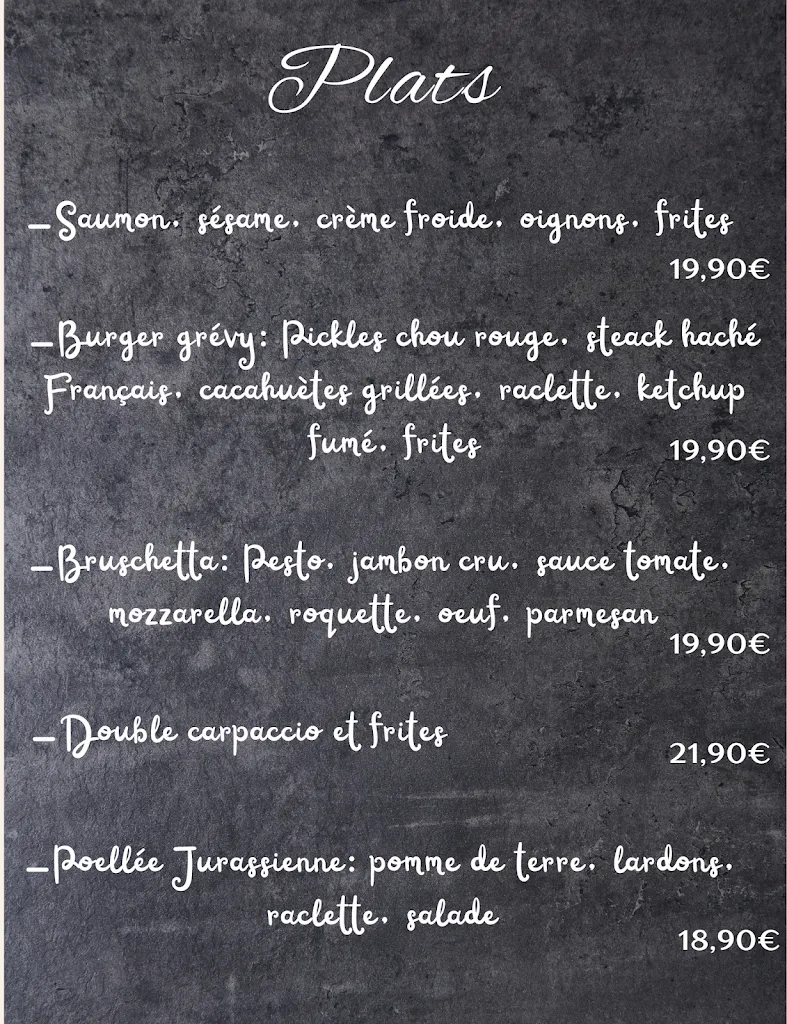 Plats
_Saumon, sésame, crème froide, oignons, frites
19,90€
_Burger grévy: Pickles chou rouge, steack haché
Français, cacahuètes grillées, raclette, ketchup
fumé, frites
19,90€
_Bruschetta: Pesto, jambon cru, sauce tomate,
mozzarella, roquette, oeuf, parmesan
19,90€
_Double carpaccio et frites
21,90€
_Poellée Jurassienne: pomme de terre, lardons,
raclette, salade
18,90€